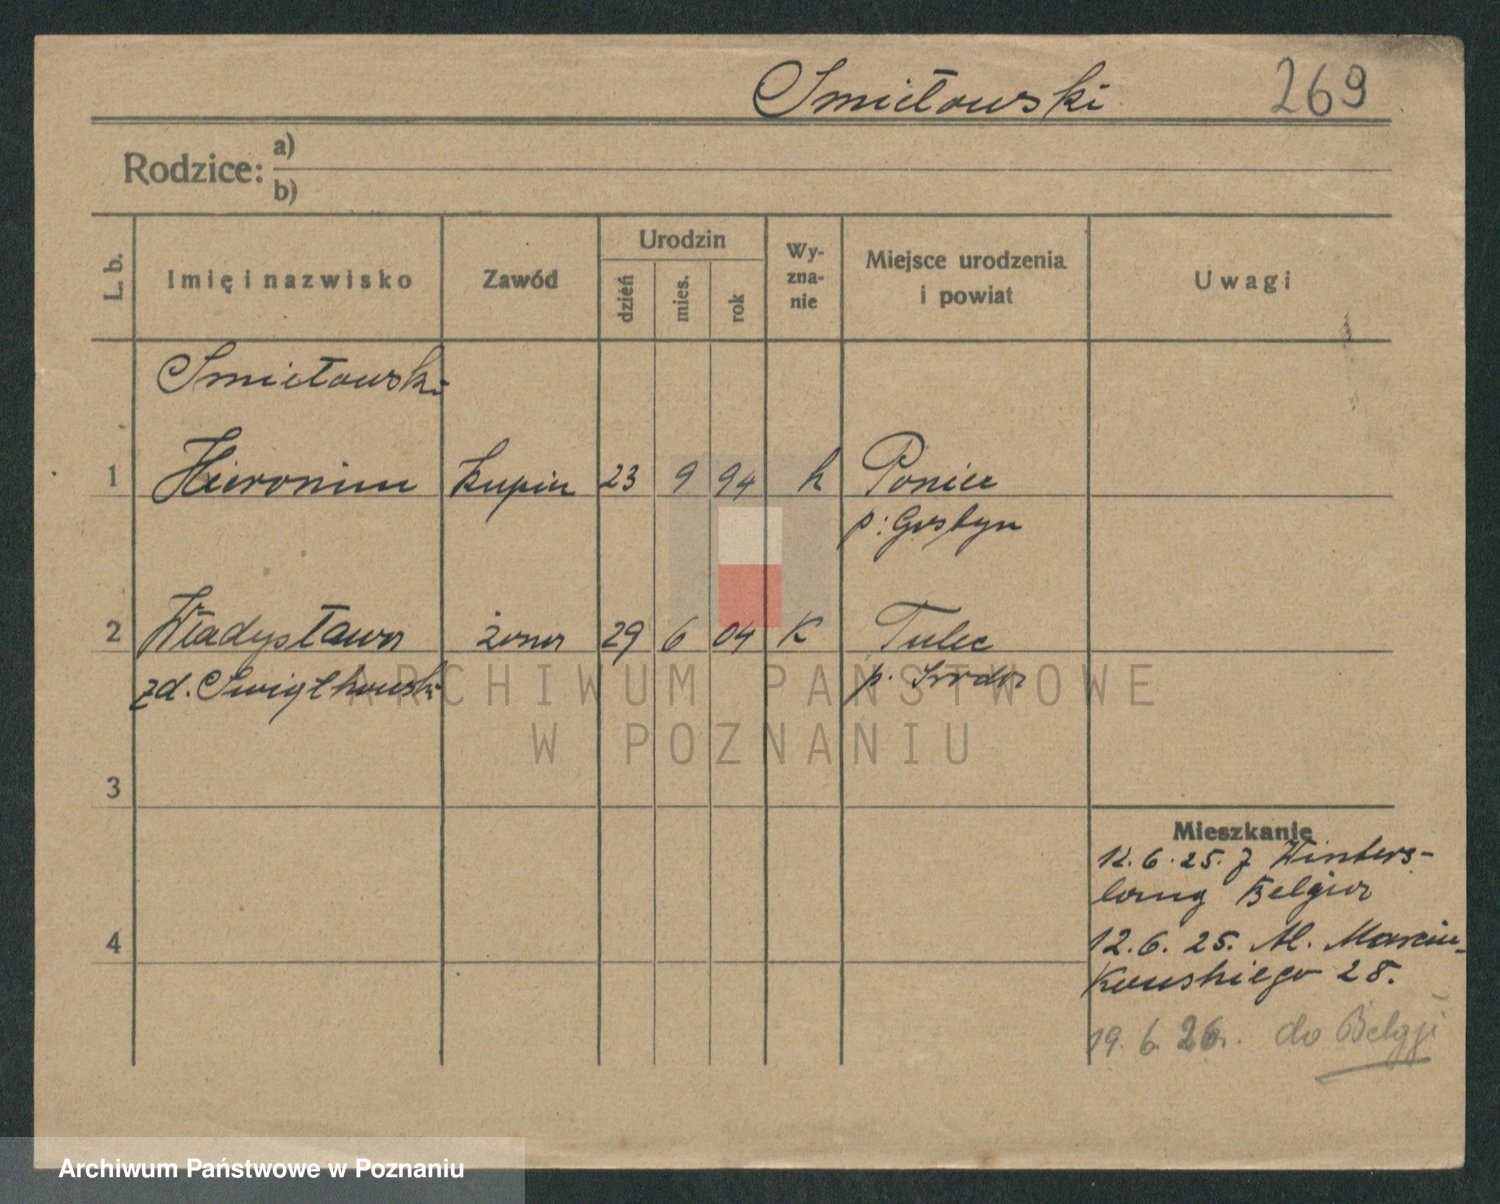 Smiełowski 269
Rodzice: a)
b)
L. b. Imię i nazwisko Zawód Urodzin dzień mies. rok Wyznanie Miejsce urodzenia i powiat Uwagi
Smiełowski
1 Hieronim kupiec 23 9 94 k Poniec
p: Gostyn
2 Władysława żona 29 6 04 K Tulec
zd. Swiątkowski p. Środa
3
Mieszkanie
12.6.25. z Winters-
lang Belgia
4 12.6.25. Al. Marcin-
kowskiego 28.
19.6.26. do Belgji
ARCHIWUM PAŃSTWOWE
W POZNANIU
Archiwum Państwowe w Poznaniu